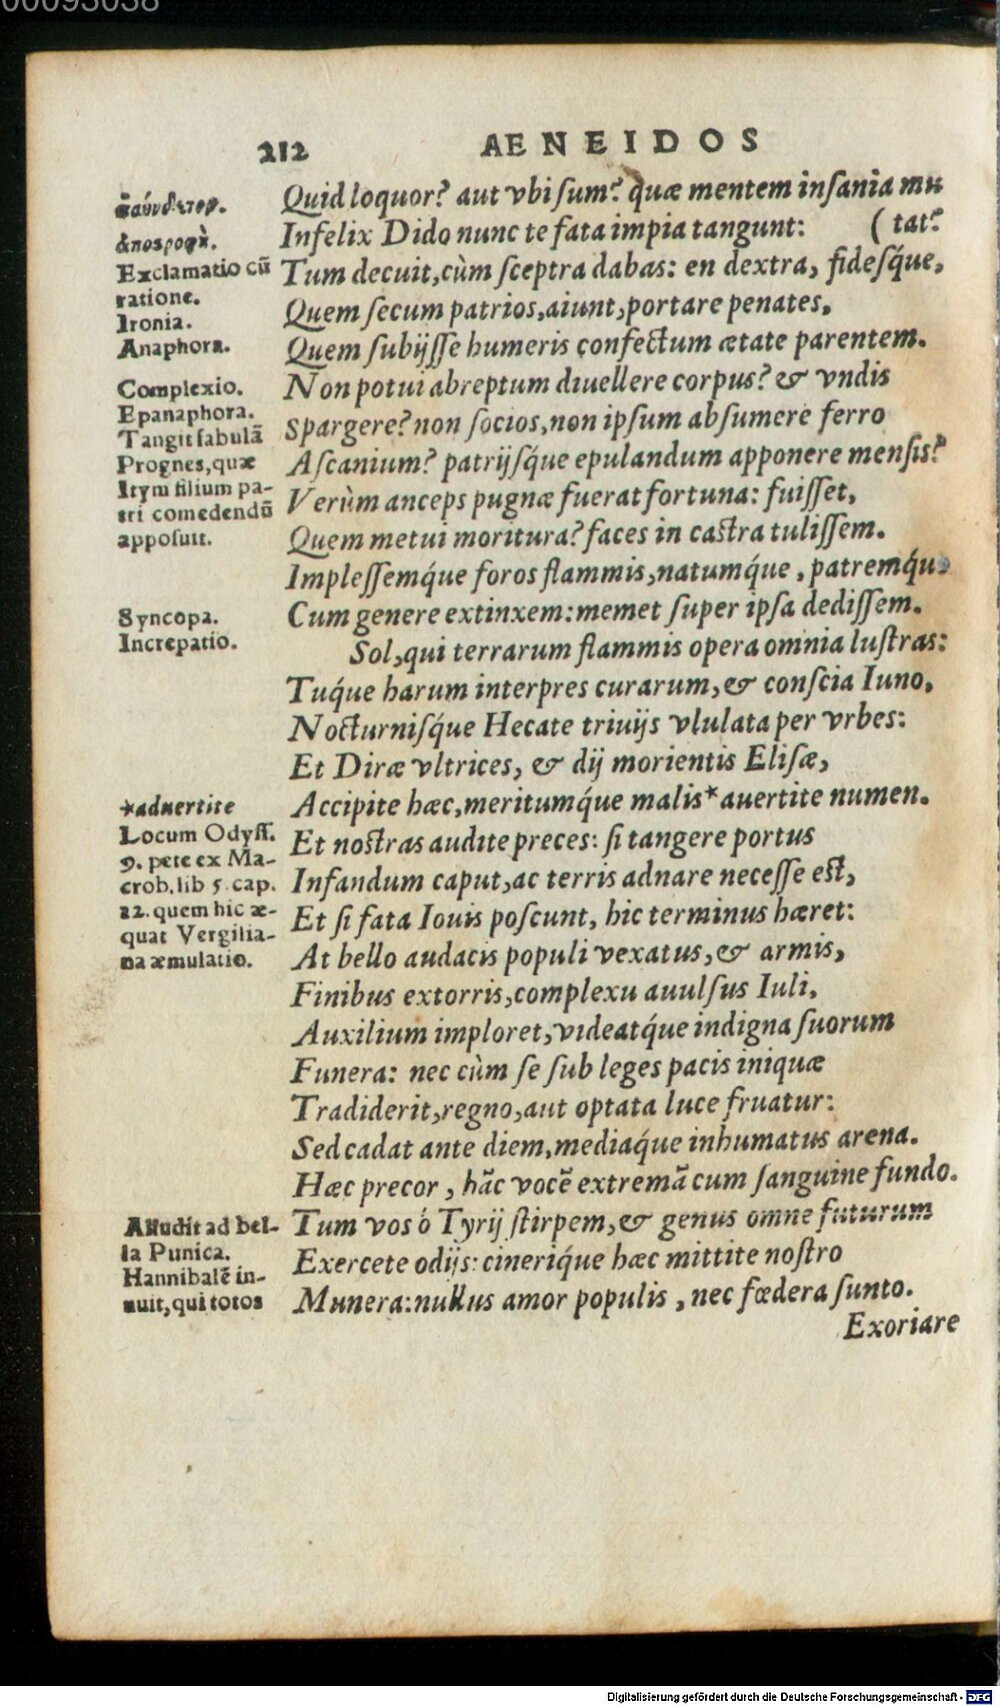 00093038
212 AENEIDOS
Quid loquor? aut vbi sum? quæ mentem insania mu
Infelix Dido nunc te fata impia tangunt: (tat?
Tum decuit, cùm sceptra dabas: en dextra, fidesq́ue,
Quem secum patrios, aiunt, portare penates,
Quem subijsse humeris confectum ætate parentem.
Non potui abreptum diuellere corpus? & vndis
Spargere? non socios, non ipsum absumere ferro
Ascanium? patrijsq́ue epulandum apponere mensis?
Verùm anceps pugnæ fuerat fortuna: fuisset,
Quem metui moritura? faces in castra tulissem.
Implessemq́ue foros flammis, natumq́ue, patremq́ue
Cum genere extinxem: memet super ipsa dedissem.
Sol, qui terrarum flammis opera omnia lustras:
Tuq́ue harum interpres curarum, & conscia Iuno,
Nocturnisq́ue Hecate triuijs vlulata per vrbes:
Et Diræ vltrices, & dij morientis Elisæ,
Accipite hæc, meritumq́ue malis* auertite numen.
Et nostras audite preces: si tangere portus
Infandum caput, ac terris adnare necesse est,
Et si fata Iouis poscunt, hic terminus hæret:
At bello audacis populi vexatus, & armis,
Finibus extorris, complexu auulsus Iuli,
Auxilium imploret, videatq́ue indigna suorum
Funera: nec cùm se sub leges pacis iniquæ
Tradiderit, regno, aut optata luce fruatur:
Sed cadat ante diem, mediaq́ue inhumatus arena.
Hæc precor, hãc vocẽ extremã cum sanguine fundo.
Tum vos ó Tyrij stirpem, & genus omne futurum
Exercete odijs: cineriq́ue hæc mittite nostro
Munera: nullus amor populis, nec fœdera sunto.
Exoriare
ἀποςροφὴ.
Exclamatio cũ
ratione.
Ironia.
Anaphora.
Complexio.
Epanaphora.
Tangit fabulã
Prognes, quæ
Itym filium pa-
tri comedendũ
apposuit.
Syncopa.
Increpatio.
*aduertite
Locum Odyss.
9. pete ex Ma-
crob. lib 5. cap.
22. quem hic æ-
quat Vergilia-
na æmulatio.
Alludit ad bel-
la Punica.
Hannibalẽ in-
nuit, qui totos
Digitalisierung gefördert durch die Deutsche Forschungsgemeinschaft - DFG